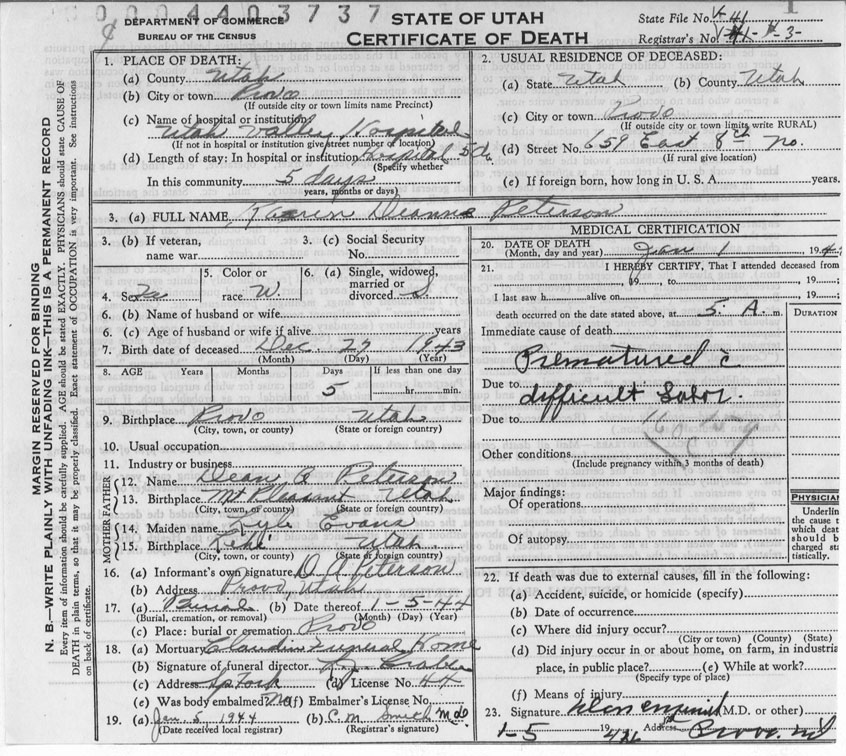 0004403737
DEPARTMENT OF COMMERCE
BUREAU OF THE CENSUS
STATE OF UTAH
CERTIFICATE OF DEATH
State File No. V-41
Registrar's No.
MARGIN RESERVED FOR BINDING
N. B.—WRITE PLAINLY WITH UNFADING INK—THIS IS A PERMANENT RECORD
Every item of information should be carefully supplied. AGE should be stated EXACTLY. PHYSICIANS should state CAUSE OF
DEATH in plain terms, so that it may be properly classified. Exact statement of OCCUPATION is very important. See instructions
on back of certificate.
1. PLACE OF DEATH:
(a) County Utah
(b) City or town Provo
(If outside city or town limits name Precinct)
(c) Name of hospital or institution:
Utah Valley Hospital
(If not in hospital or institution give street number or location)
(d) Length of stay: In hospital or institution Hospital 5 d
(Specify whether
In this community 5 days
years, months or days)
2. USUAL RESIDENCE OF DECEASED:
(a) State Utah (b) County Utah
(c) City or town Provo
(If outside city or town limits write RURAL)
(d) Street No. 659 East 8th No.
(If rural give location)
(e) If foreign born, how long in U. S. A. years.
3. (a) FULL NAME Karen Deanne Peterson
3. (b) If veteran,
name war
3. (c) Social Security
No.
4. Sex
5. Color or
race W.
6. (a) Single, widowed,
married or
divorced S
6. (b) Name of husband or wife
6. (c) Age of husband or wife if alive years
7. Birth date of deceased Dec. 27 1943
(Month) (Day) (Year)
8. AGE Years Months Days If less than one day
5 hr. min.
9. Birthplace Provo Utah
(City, town, or county) (State or foreign country)
10. Usual occupation
11. Industry or business
FATHER
12. Name Dean A Peterson
13. Birthplace Mt Pleasant Utah
(City, town, or county) (State or foreign country)
MOTHER
14. Maiden name Lyle Evans
15. Birthplace Lehi Utah
(City, town, or county) (State or foreign country)
16. (a) Informant's own signature D A Peterson
(b) Address Provo, Utah
17. (a) Burial (b) Date thereof 1-5-44
(Burial, cremation, or removal) (Month) (Day) (Year)
(c) Place: burial or cremation Provo
18. (a) Mortuary Claudin Funeral Home
(b) Signature of funeral director
(c) Address Sp Fork (d) License No. 44
(e) Was body embalmed No (f) Embalmer's License No.
19. (a) Jan 5 1944 (b) C. M. Smith M D
(Date received local registrar) (Registrar's signature)
MEDICAL CERTIFICATION
20. DATE OF DEATH
(Month, day and year) Jan 1 194
21. I HEREBY CERTIFY, That I attended deceased from
, 19 , to , 19 ;
I last saw h alive on , 19 ;
death occurred on the date stated above, at 5 A. m.
DURATION
Immediate cause of death
Prematured c̄
Due to difficult labor.
Due to
Other conditions
(Include pregnancy within 3 months of death)
Major findings:
Of operations
Of autopsy
PHYSICIAN
Underlin
the cause t
which deat
should b
charged sta
tistically.
22. If death was due to external causes, fill in the following:
(a) Accident, suicide, or homicide (specify)
(b) Date of occurrence
(c) Where did injury occur?
(City or town) (County) (State)
(d) Did injury occur in or about home, on farm, in industria
place, in public place? (e) While at work?
(Specify type of place)
(f) Means of injury
23. Signature (M.D. or other)
1-5 19 Address